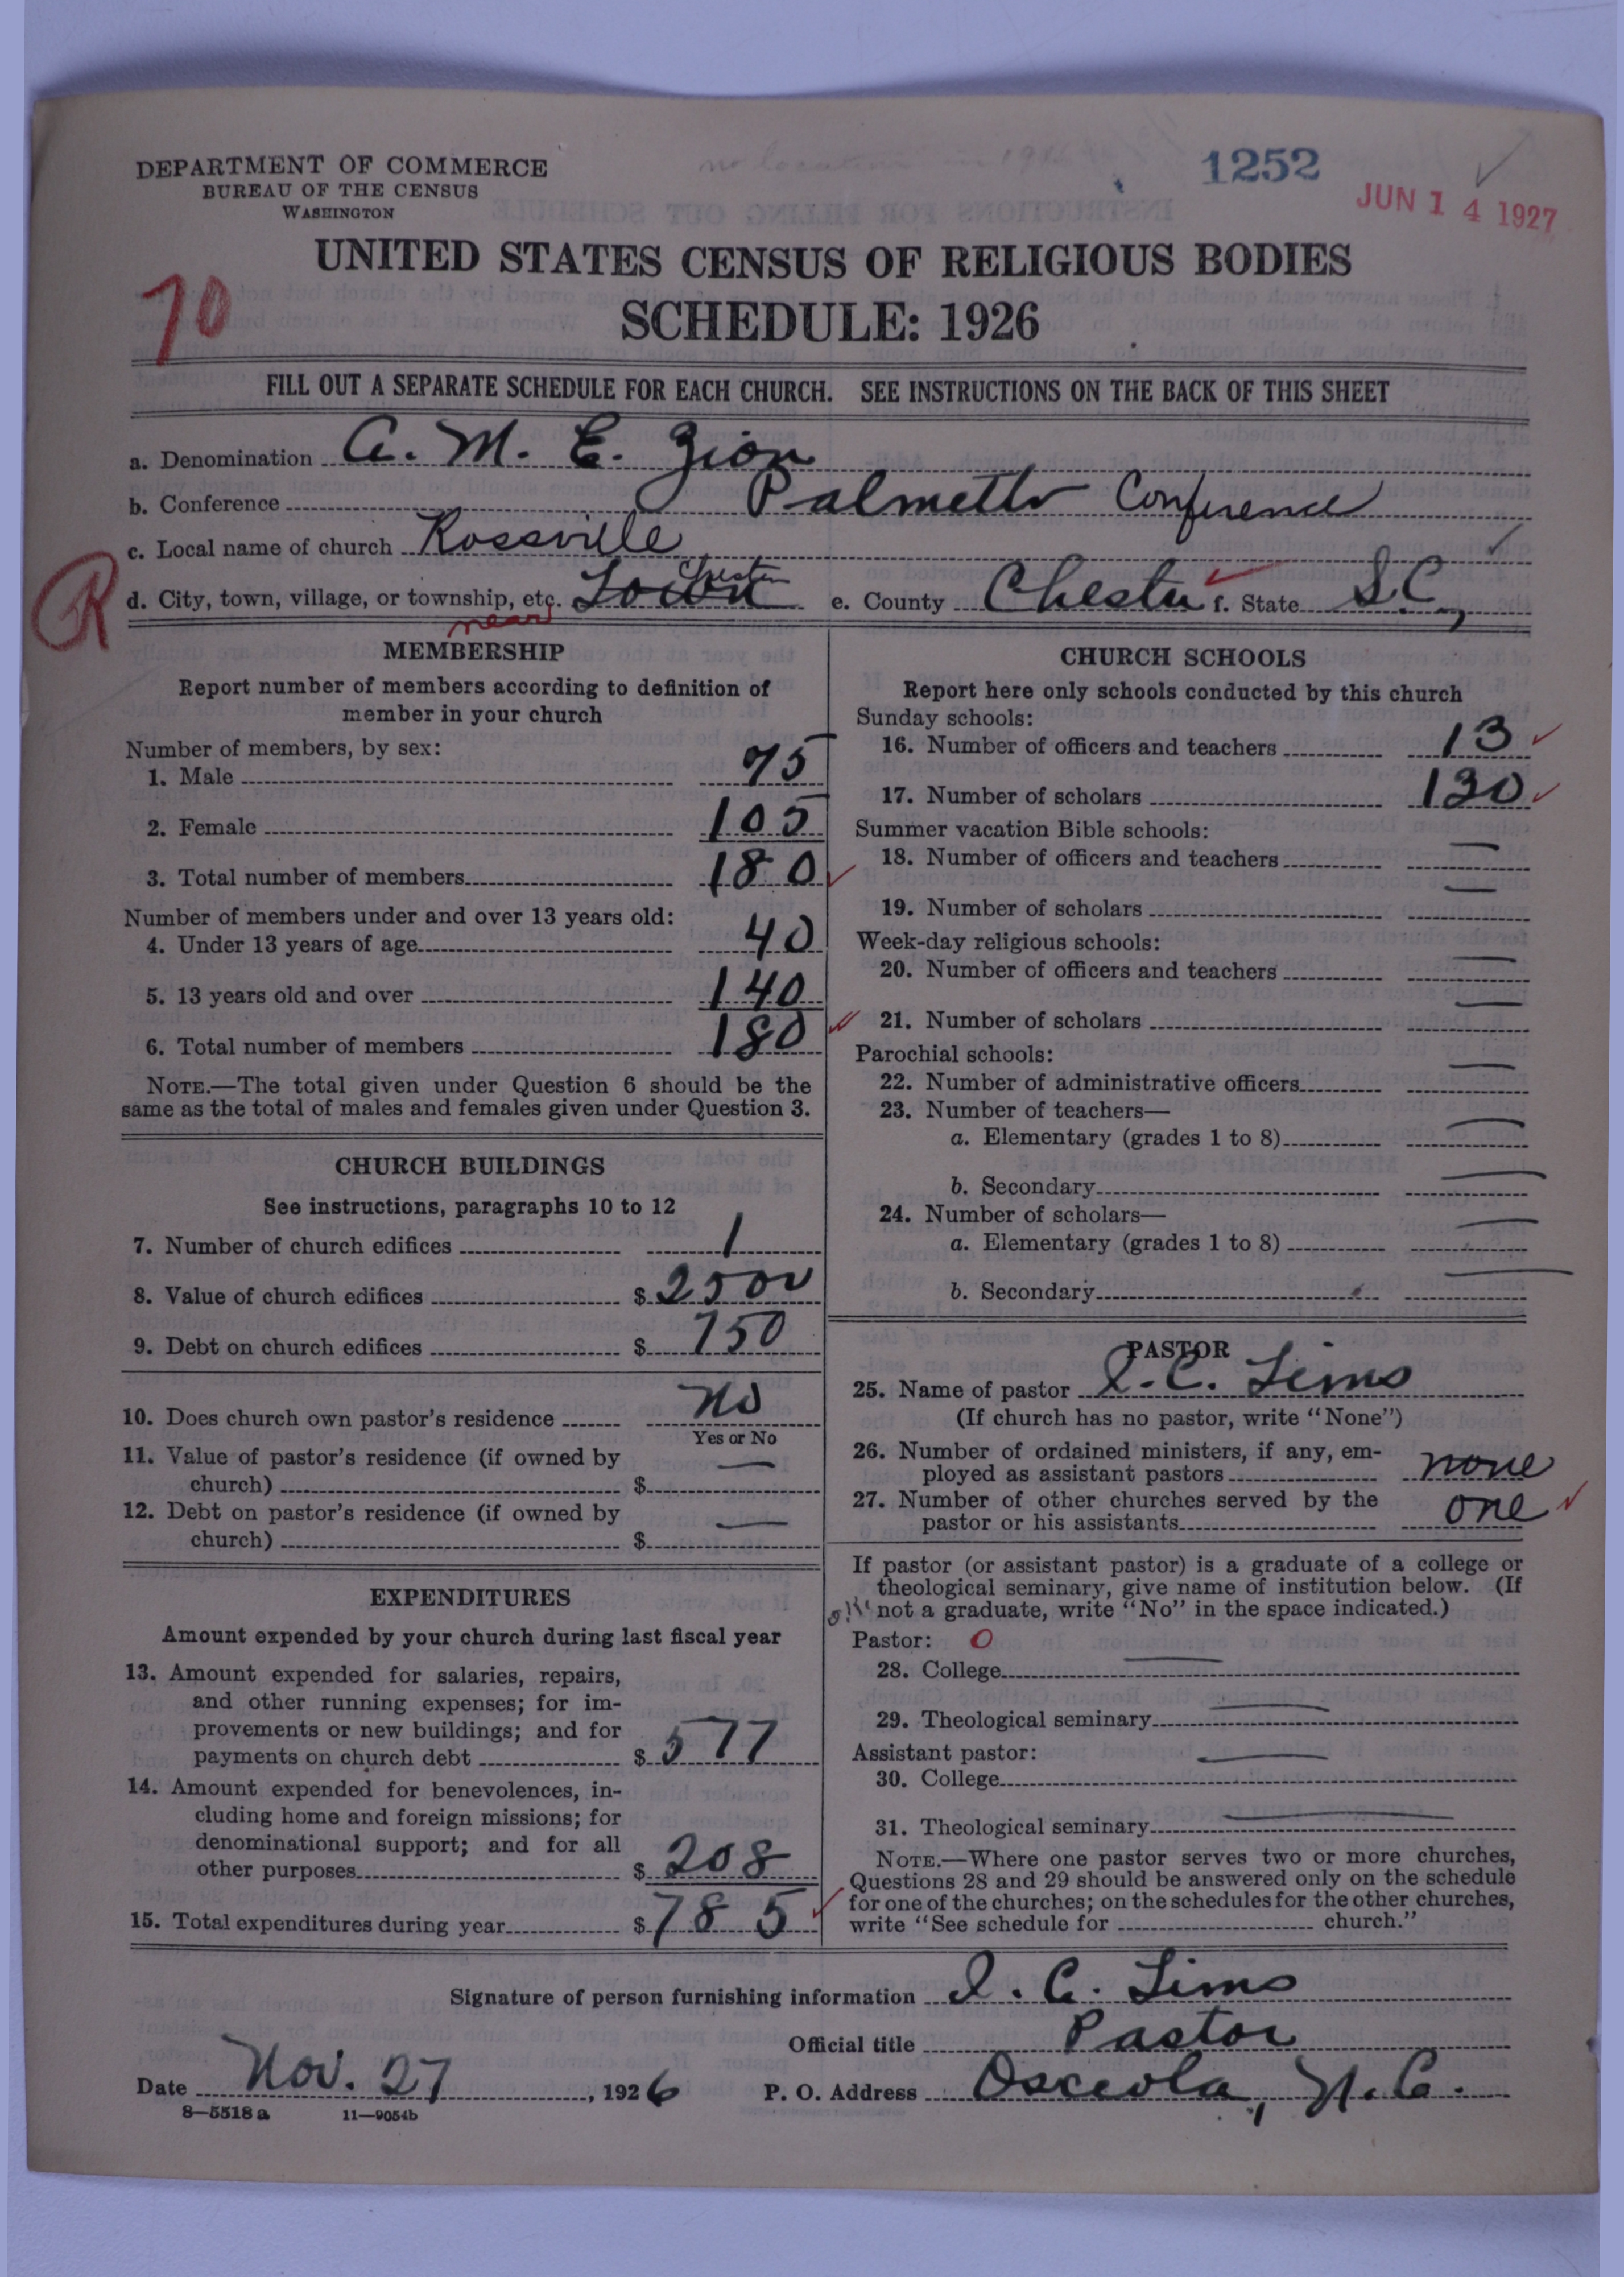 no location in 1916
1252
JUN 14 1927
DEPARTMENT OF COMMERCE
BUREAU OF THE CENSUS
WASHINGTON
UNITED STATES CENSUS OF RELIGIOUS BODIES
70
SCHEDULE: 1926
FILL OUT A SEPARATE SCHEDULE FOR EACH CHURCH. SEE INSTRUCTIONS ON THE BACK OF THIS SHEET
a. Denomination A. M. E. Zion
b. Conference Palmetto Conference
c. Local name of church Rossville
R
d. City, town, village, or township, etc. Town Chester e. County Chester f. State S.C.,
near
MEMBERSHIP
Report number of members according to definition of
member in your church
Number of members, by sex:
1. Male 75
2. Female 105
3. Total number of members 180
Number of members under and over 13 years old:
4. Under 13 years of age 40
5. 13 years old and over 140
6. Total number of members 180
NOTE.—The total given under Question 6 should be the
same as the total of males and females given under Question 3.
CHURCH BUILDINGS
See instructions, paragraphs 10 to 12
7. Number of church edifices 1
8. Value of church edifices $ 2500
9. Debt on church edifices $ 750
10. Does church own pastor's residence No
Yes or No
11. Value of pastor's residence (if owned by
church) $ —
12. Debt on pastor's residence (if owned by
church) $ —
EXPENDITURES
Amount expended by your church during last fiscal year
13. Amount expended for salaries, repairs,
and other running expenses; for im-
provements or new buildings; and for
payments on church debt $ 577
14. Amount expended for benevolences, in-
cluding home and foreign missions; for
denominational support; and for all
other purposes $ 208
15. Total expenditures during year $ 785
CHURCH SCHOOLS
Report here only schools conducted by this church
Sunday schools:
16. Number of officers and teachers 13
17. Number of scholars 130
Summer vacation Bible schools:
18. Number of officers and teachers —
19. Number of scholars —
Week-day religious schools:
20. Number of officers and teachers —
21. Number of scholars —
Parochial schools:
22. Number of administrative officers —
23. Number of teachers—
a. Elementary (grades 1 to 8) —
b. Secondary —
24. Number of scholars—
a. Elementary (grades 1 to 8) —
b. Secondary —
PASTOR
25. Name of pastor I. C. Sims
(If church has no pastor, write "None")
26. Number of ordained ministers, if any, em-
ployed as assistant pastors none
27. Number of other churches served by the
pastor or his assistants one
If pastor (or assistant pastor) is a graduate of a college or
theological seminary, give name of institution below. (If
not a graduate, write "No" in the space indicated.)
Pastor: 0
28. College —
29. Theological seminary —
Assistant pastor:
30. College —
31. Theological seminary —
NOTE.—Where one pastor serves two or more churches,
Questions 28 and 29 should be answered only on the schedule
for one of the churches; on the schedules for the other churches,
write "See schedule for church."
Signature of person furnishing information I. C. Sims
Official title Pastor
Date Nov. 27, 1926 P. O. Address Osceola, N.C.
8—5518 a 11—9054b